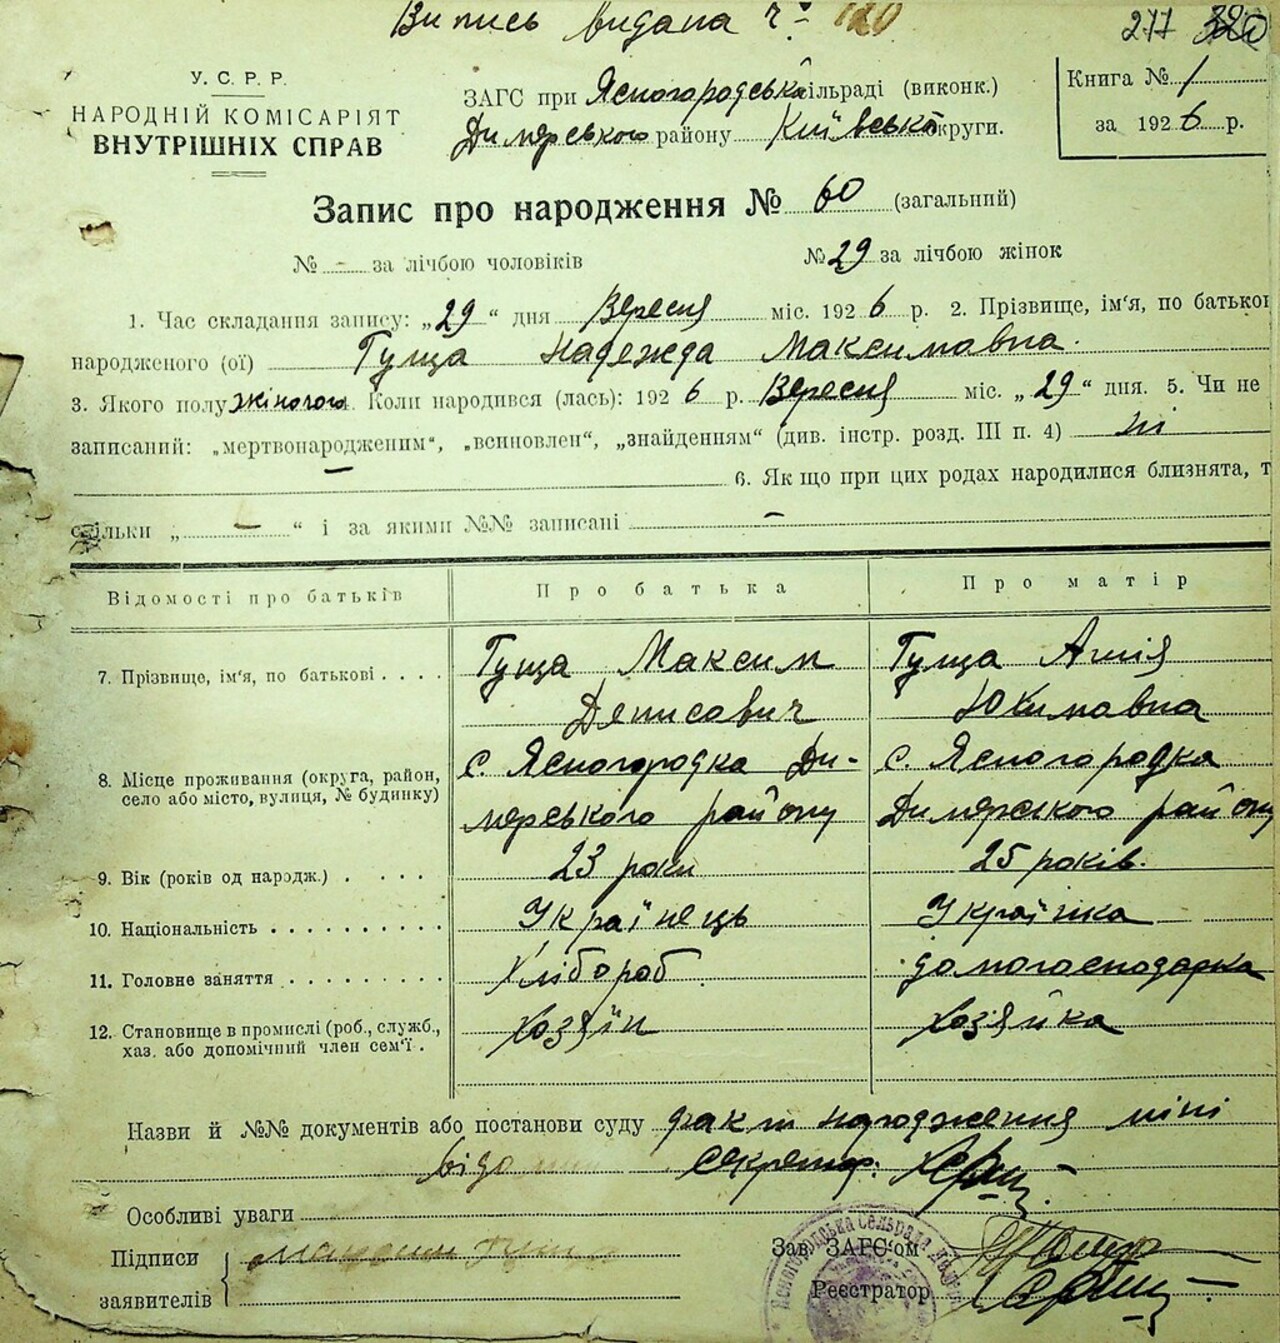 Випись видана ч. 120
277 320
У. С. Р. Р.
НАРОДНІЙ КОМІСАРІЯТ
ВНУТРІШНІХ СПРАВ
ЗАГС при Ясногородській сільраді (виконк.)
Димерського району Київської округи.
Книга № 1
за 1926 р.
Запис про народження № 60 (загальний)
№ - за лічбою чоловіків
№ 29 за лічбою жінок
1. Час складання запису: „29“ дня Вересня міс. 1926 р. 2. Прізвище, ім'я, по батьков
народженого (ої) Гуща Надежда Максимавна.
3. Якого полу жіночого. Коли народився (лась): 1926 р. Вересня міс. „29“ дня. 5. Чи не
записаний: „мертвонародженим“, „всиновлен“, „знайденням“ (див. інстр. розд. III п. 4) ні
— 6. Як що при цих родах народилися близнята, т
скільки „ — “ і за якими №№ записані —
Відомості про батьків
Про батька
Про матір
7. Прізвище, ім'я, по батькові . . . .
Гуща Максим
Денисович
Гуща Агнія
Юхимавна
8. Місце проживання (округа, район,
село або місто, вулиця, № будинку)
с. Ясногородка Ди-
мерського району
с. Ясногородка
Димерського району
9. Вік (років од народж.) . . . .
23 роки
25 років.
10. Національність . . . . . . . . . .
Українець
Українка
11. Головне заняття . . . . . . . . .
Хлібороб
домогосподарка
12. Становище в промислі (роб., служб.,
хаз. або допомічний член сем'ї .
Хозяїн
Хозяйка
Назви й №№ документів або постанови суду факт народження міні
відо секретар:
Особливі уваги
Підписи
заявителів
Зав. ЗАГС'ом
Реєстратор